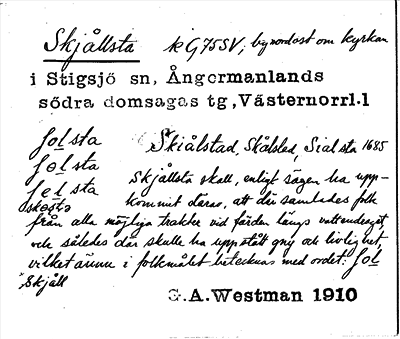 Skjållsta k G75SV; by nordost om kyrkan
i Stigsjö sn, Ångermanlands
södra domsagas tg, Västernorrl.l
Solsta Skiålstad, Skålsled, Sialsta 1685
Selsta Skjållsta skall, enligt sägen ha upp-
Selsta kommit därav, att där samlades folk
från alla möjliga trakter vid färden längs vattendraget,
och således där skulle ha uppstått gny och livlighet,
vilket ännu i folkmålet betecknas med ordet: Sol
Skjåll
G.A.Westman 1910